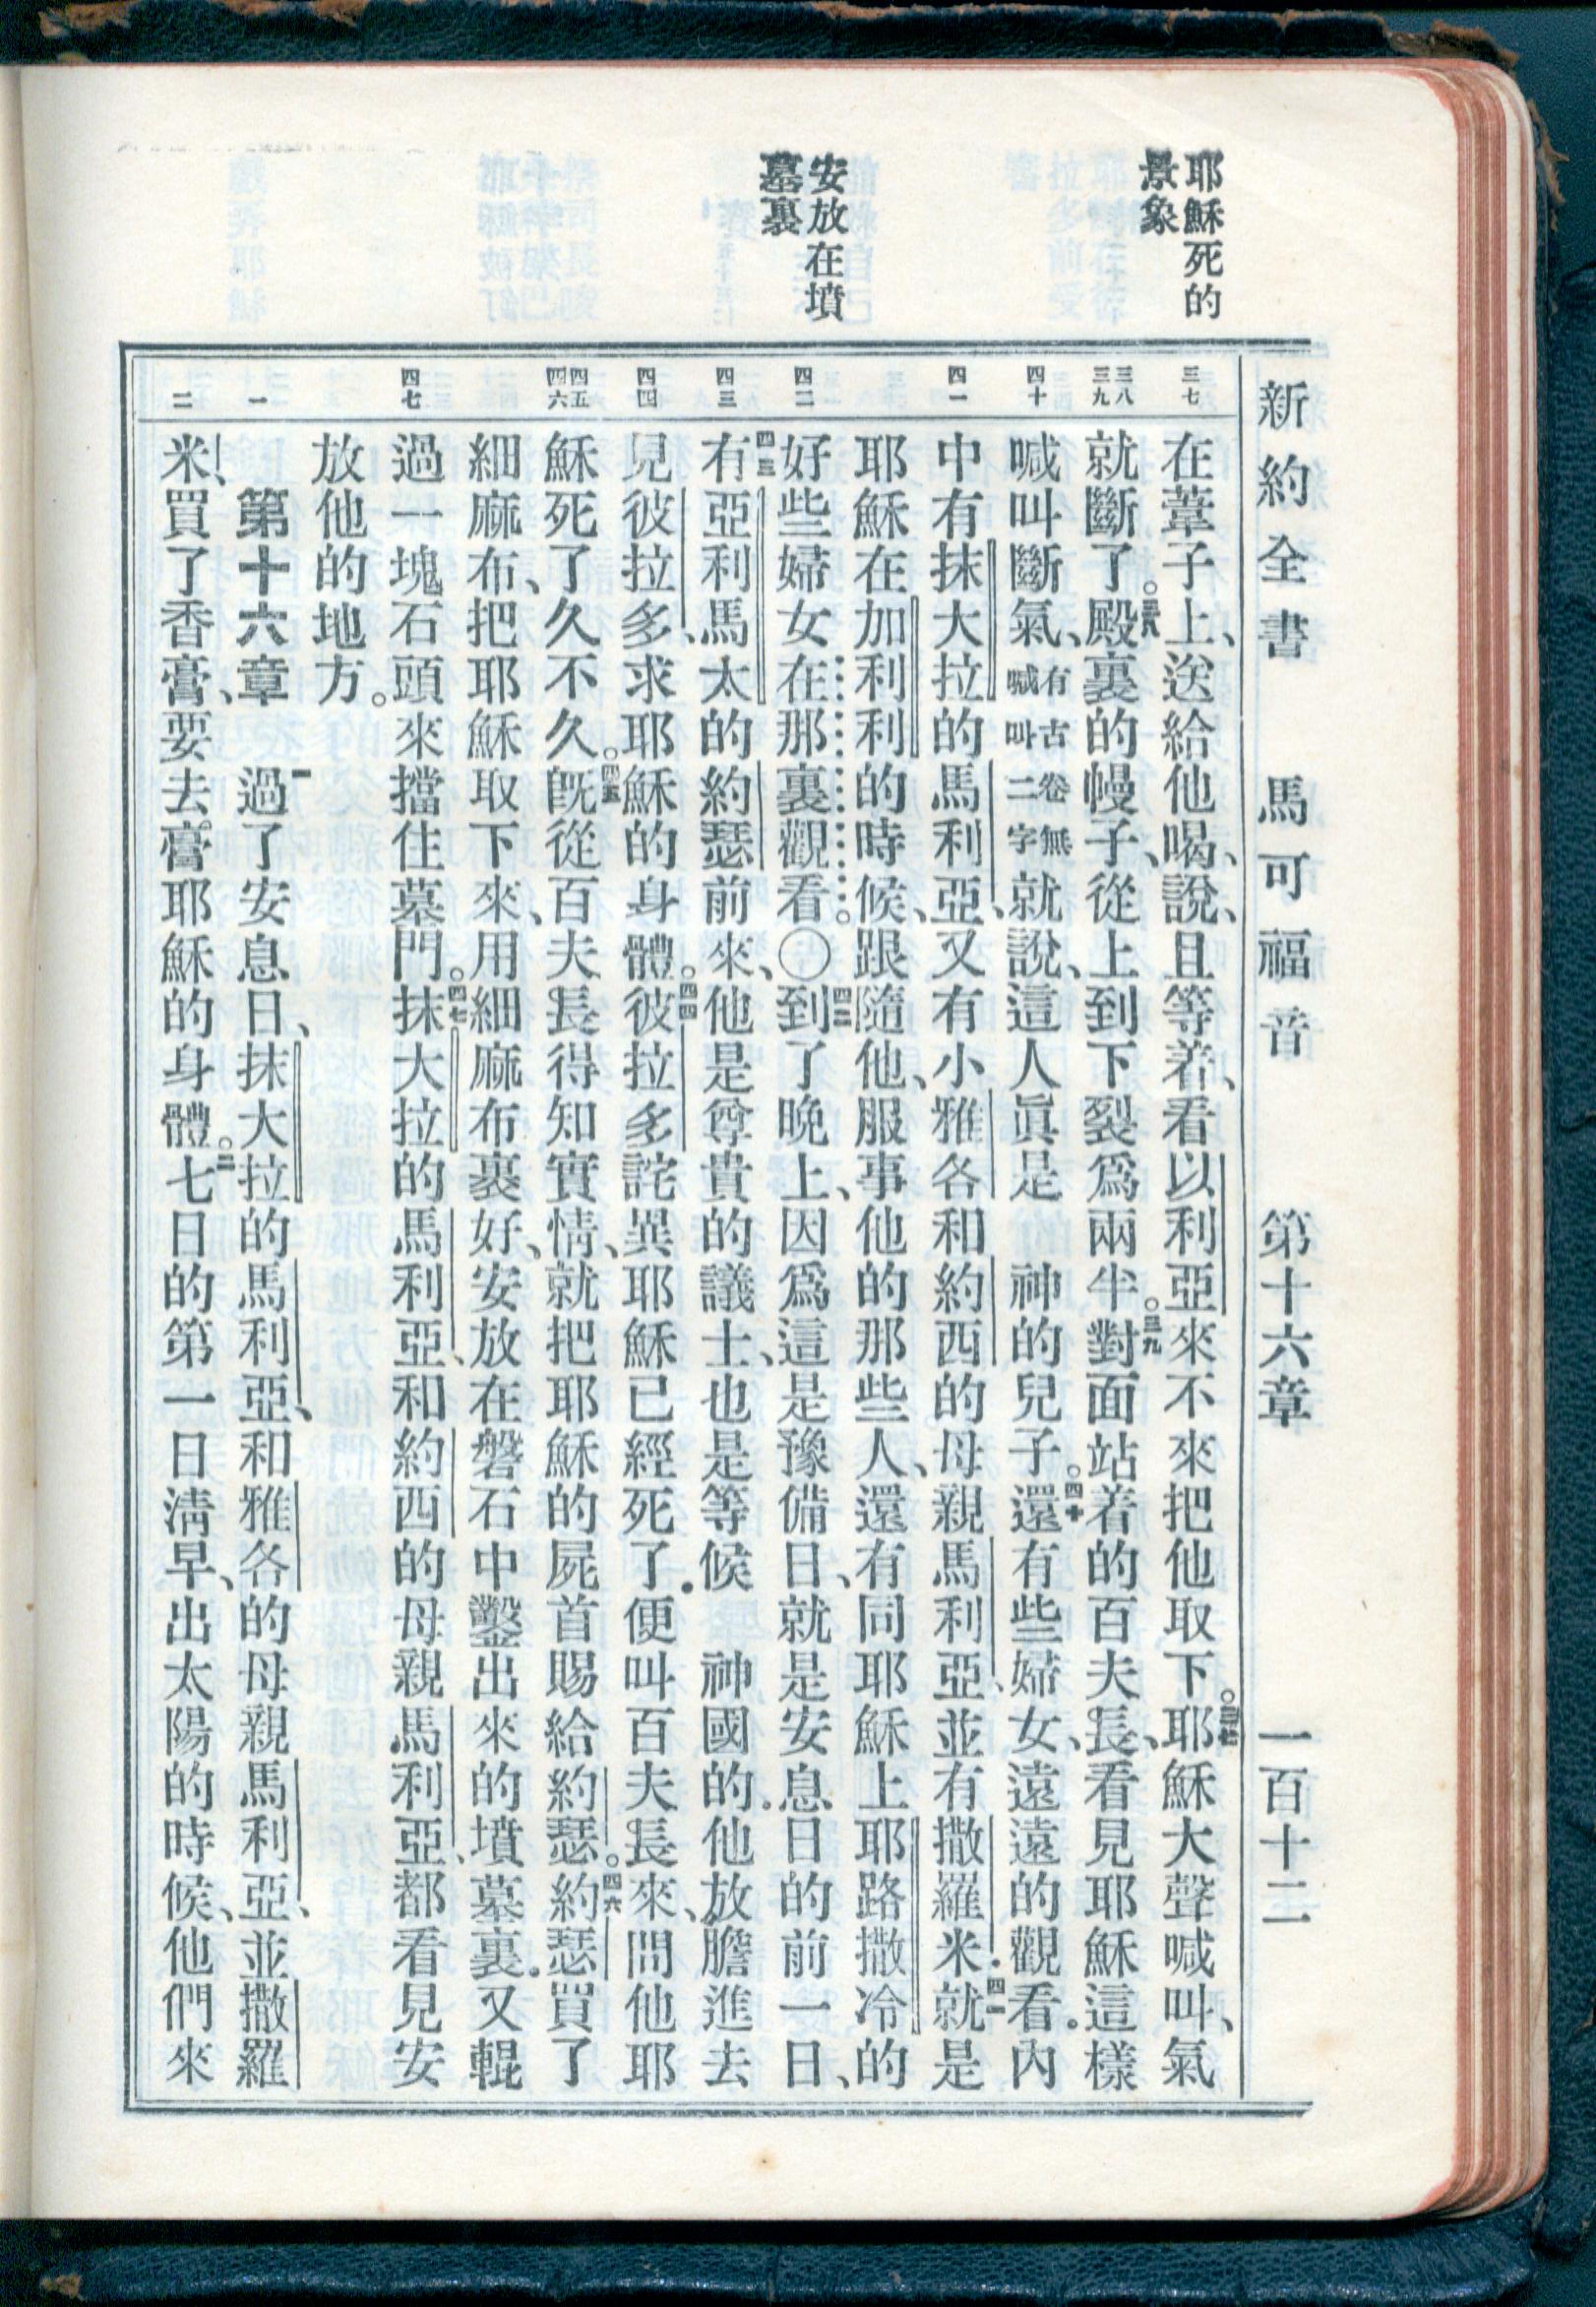 新約全書　馬可福音　第十六章　一百十二
耶穌死的
景象
安放在墳
墓裏
三七
三八
三九
四十
四一
四二
四三
四四
四五
四六
四七
一
二
在葦子上、送給他喝、說、且等着、看以利亞來不來把他取下。三七耶穌大聲喊叫、氣
就斷了。三八殿裏的幔子、從上到下裂爲兩半。三九對面站着的百夫長、看見耶穌這樣
喊叫斷氣、有古卷無喊叫二字就說、這人眞是　神的兒子。四十還有些婦女、遠遠的觀看．內
中有抹大拉的馬利亞、又有小雅各和約西的母親馬利亞、並有撒羅米．四一就是
耶穌在加利利的時候、跟隨他、服事他的那些人、還有同耶穌上耶路撒冷的
好些婦女在那裏觀看。〇四二到了晚上、因爲這是豫備日、就是安息日的前一日、
四三有亞利馬太的約瑟前來、他是尊貴的議士、也是等候　神國的．他放膽進去
見彼拉多、求耶穌的身體。四四彼拉多詫異耶穌已經死了．便叫百夫長來、問他耶
穌死了久不久。四五旣從百夫長得知實情、就把耶穌的屍首賜給約瑟。四六約瑟買了
細麻布、把耶穌取下來、用細麻布裹好、安放在磐石中鑿出來的墳墓裏．又輥
過一塊石頭來擋住墓門。四七抹大拉的馬利亞、和約西的母親馬利亞、都看見安
放他的地方。
第十六章　一過了安息日、抹大拉的馬利亞、和雅各的母親馬利亞、並撒羅
米、買了香膏、要去膏耶穌的身體。二七日的第一日淸早、出太陽的時候、他們來